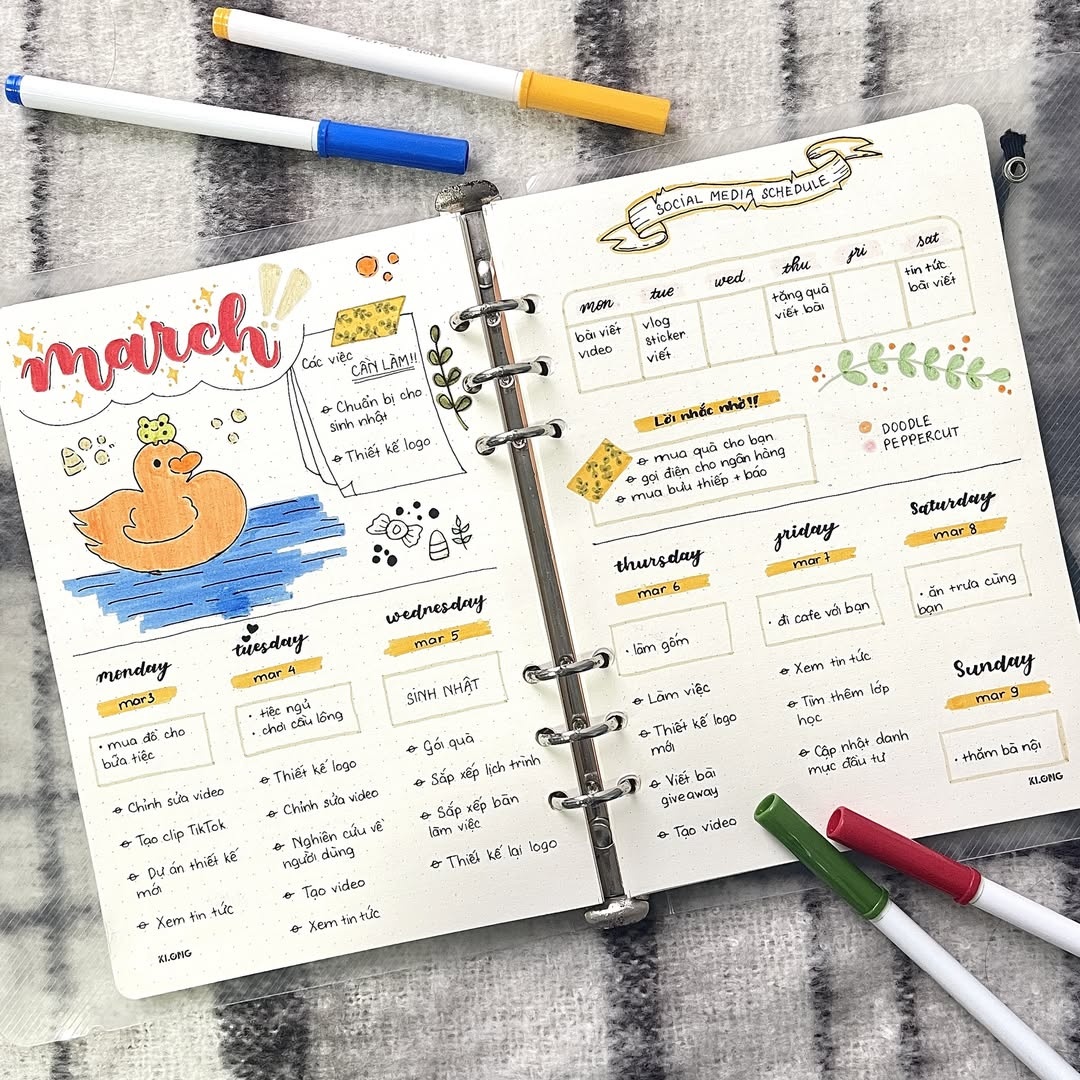 march!!
Các việc
CẦN LÀM!!
Chuẩn bị cho
sinh nhật
Thiết kế logo
monday
mar 3
• mua đồ cho
bữa tiệc
Chỉnh sửa video
Tạo clip TikTok
Dự án thiết kế
mới
Xem tin tức
tuesday
mar 4
• tiệc ngủ
• chơi cầu lông
Thiết kế logo
Chỉnh sửa video
Nghiên cứu về
người dùng
Tạo video
Xem tin tức
wednesday
mar 5
SINH NHẬT
Gói quà
Sắp xếp lịch trình
Sắp xếp bàn
làm việc
Thiết kế lại logo
KI.ONG
SOCIAL MEDIA SCHEDULE
mon
tue
wed
thu
fri
sat
bài viết
video
vlog
sticker
viết
tặng quà
viết bài
tin tức
bài viết
Lời nhắc nhở!!
mua quà cho bạn
gọi điện cho ngân hàng
mua bưu thiếp + báo
DOODLE
PEPPERCUT
thursday
mar 6
• làm gốm
Làm việc
Thiết kế logo
mới
Viết bài
giveaway
Tạo video
friday
mar 7
• đi cafe với bạn
Xem tin tức
Tìm thêm lớp
học
Cập nhật danh
mục đầu tư
saturday
mar 8
• ăn trưa cùng
bạn
Sunday
mar 9
• thăm bà nội
KI.ONG